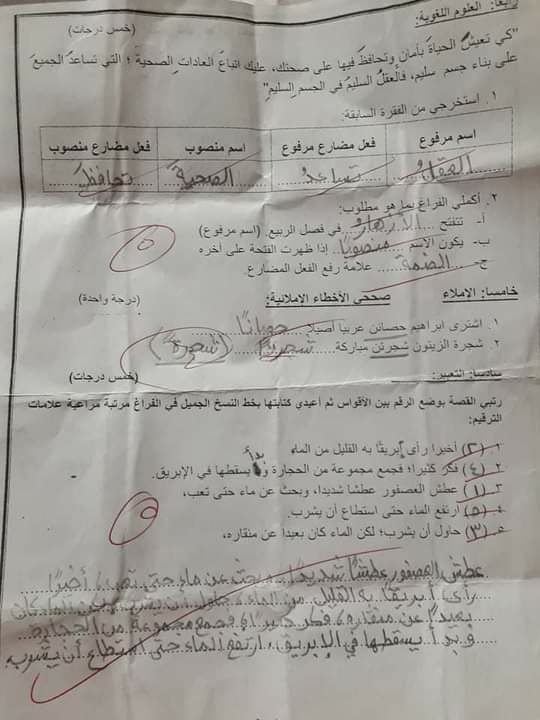 رابعا: العلوم اللغوية: (خمس درجات)
"كي تعيشَ الحياةَ بأمان وتحافظَ فيها على صحتك، عليك اتباعَ العاداتِ الصحيةَ ؛ التي تساعدُ الجميعَ
على بناء جسم سليم، فالعقلُ السليمُ في الجسمِ السليمِ"
١. استخرجي من الفقرة السابقة:
اسم مرفوع فعل مضارع مرفوع اسم منصوب فعل مضارع منصوب
العقلُ تساعدُ الصحيةَ تحافظَ
٢. أكملي الفراغ بما هو مطلوب:
أ- تتفتح الأزهار في فصل الربيع. (اسم مرفوع)
ب- يكون الاسم منصوبًا إذا ظهرت الفتحة على آخره
ج- الضمة علامة رفع الفعل المضارع.
٥
خامسا: الاملاء صححي الأخطاء الإملائية: (درجة واحدة)
١. اشترى ابراهيم حصانن عربيا أصيلا. حصانًا
٢. شجرة الزيتون شجرتن مباركة. (شجرةً)
سادسا: التعبير: (خمس درجات)
رتبي القصة بوضع الرقم بين الأقواس ثم أعيدي كتابتها بخط النسخ الجميل في الفراغ مرتبة مراعية علامات
الترقيم:
١- (٢) أخيرا رأى إبريقًا به القليل من الماء
٢- (٤) فكر كثيرا؛ فجمع مجموعة من الحجارة وبدأ يسقطها في الإبريق.
٣- (١) عطش العصفور عطشا شديدا، وبحث عن ماء حتى تعب،
٤- (٥) ارتفع الماء حتى استطاع أن يشرب.
٥- (٣) حاول أن يشرب؛ لكن الماء كان بعيدا عن منقاره،
٥
عطش العصفور عطشًا شديدًا، وبحث عن ماء حتى تعب، أخيرًا
رأى أبريقًا به القليل من الماء، حاول أن يشرب كان
بعيدًا عن منقاره، فجمع مجموعة من الحجارة
وبدأ يسقطها في الإبريق، ارتفع الماء حتى استطاع أن يشرب.